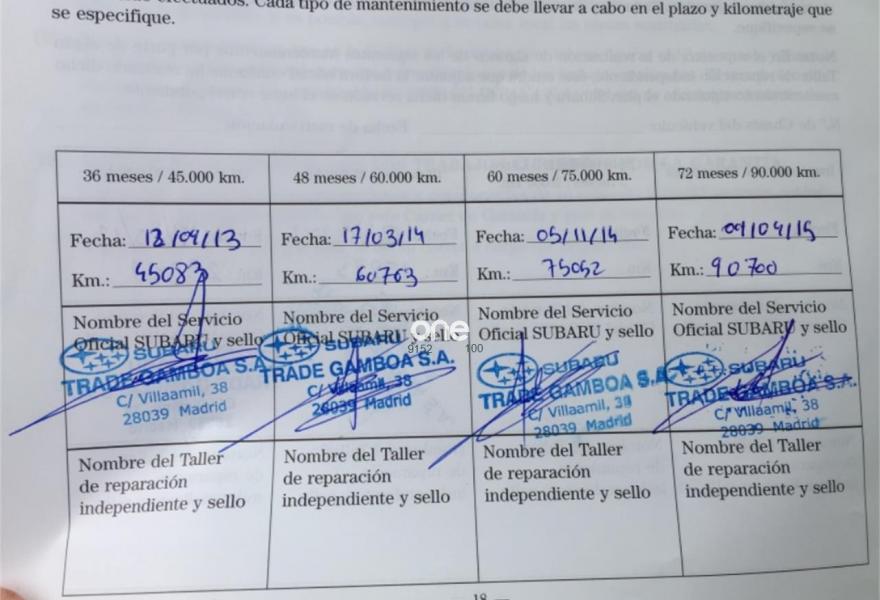 efectuados. Cada tipo de mantenimiento se debe llevar a cabo en el plazo y kilometraje que
se especifique.
36 meses / 45.000 km.
48 meses / 60.000 km.
60 meses / 75.000 km.
72 meses / 90.000 km.
Fecha: 12/04/13
Km.: 45083
Fecha: 17/03/14
Km.: 60763
Fecha: 05/11/14
Km.: 75052
Fecha: 09/04/15
Km.: 90700
Nombre del Servicio
Oficial SUBARU y sello
SUBARU
TRADE GAMBOA S.A.
C/ Villaamil, 38
28039 Madrid
Nombre del Servicio
Oficial SUBARU y sello
SUBARU
TRADE GAMBOA S.A.
C/ Villaamil, 38
28039 Madrid
Nombre del Servicio
Oficial SUBARU y sello
SUBARU
TRADE GAMBOA S.A.
C/ Villaamil, 38
28039 Madrid
Nombre del Servicio
Oficial SUBARU y sello
SUBARU
TRADE GAMBOA S.A.
C/ Villaamil, 38
28039 Madrid
one
9152 100
Nombre del Taller
de reparación
independiente y sello
Nombre del Taller
de reparación
independiente y sello
Nombre del Taller
de reparación
independiente y sello
Nombre del Taller
de reparación
independiente y sello
18